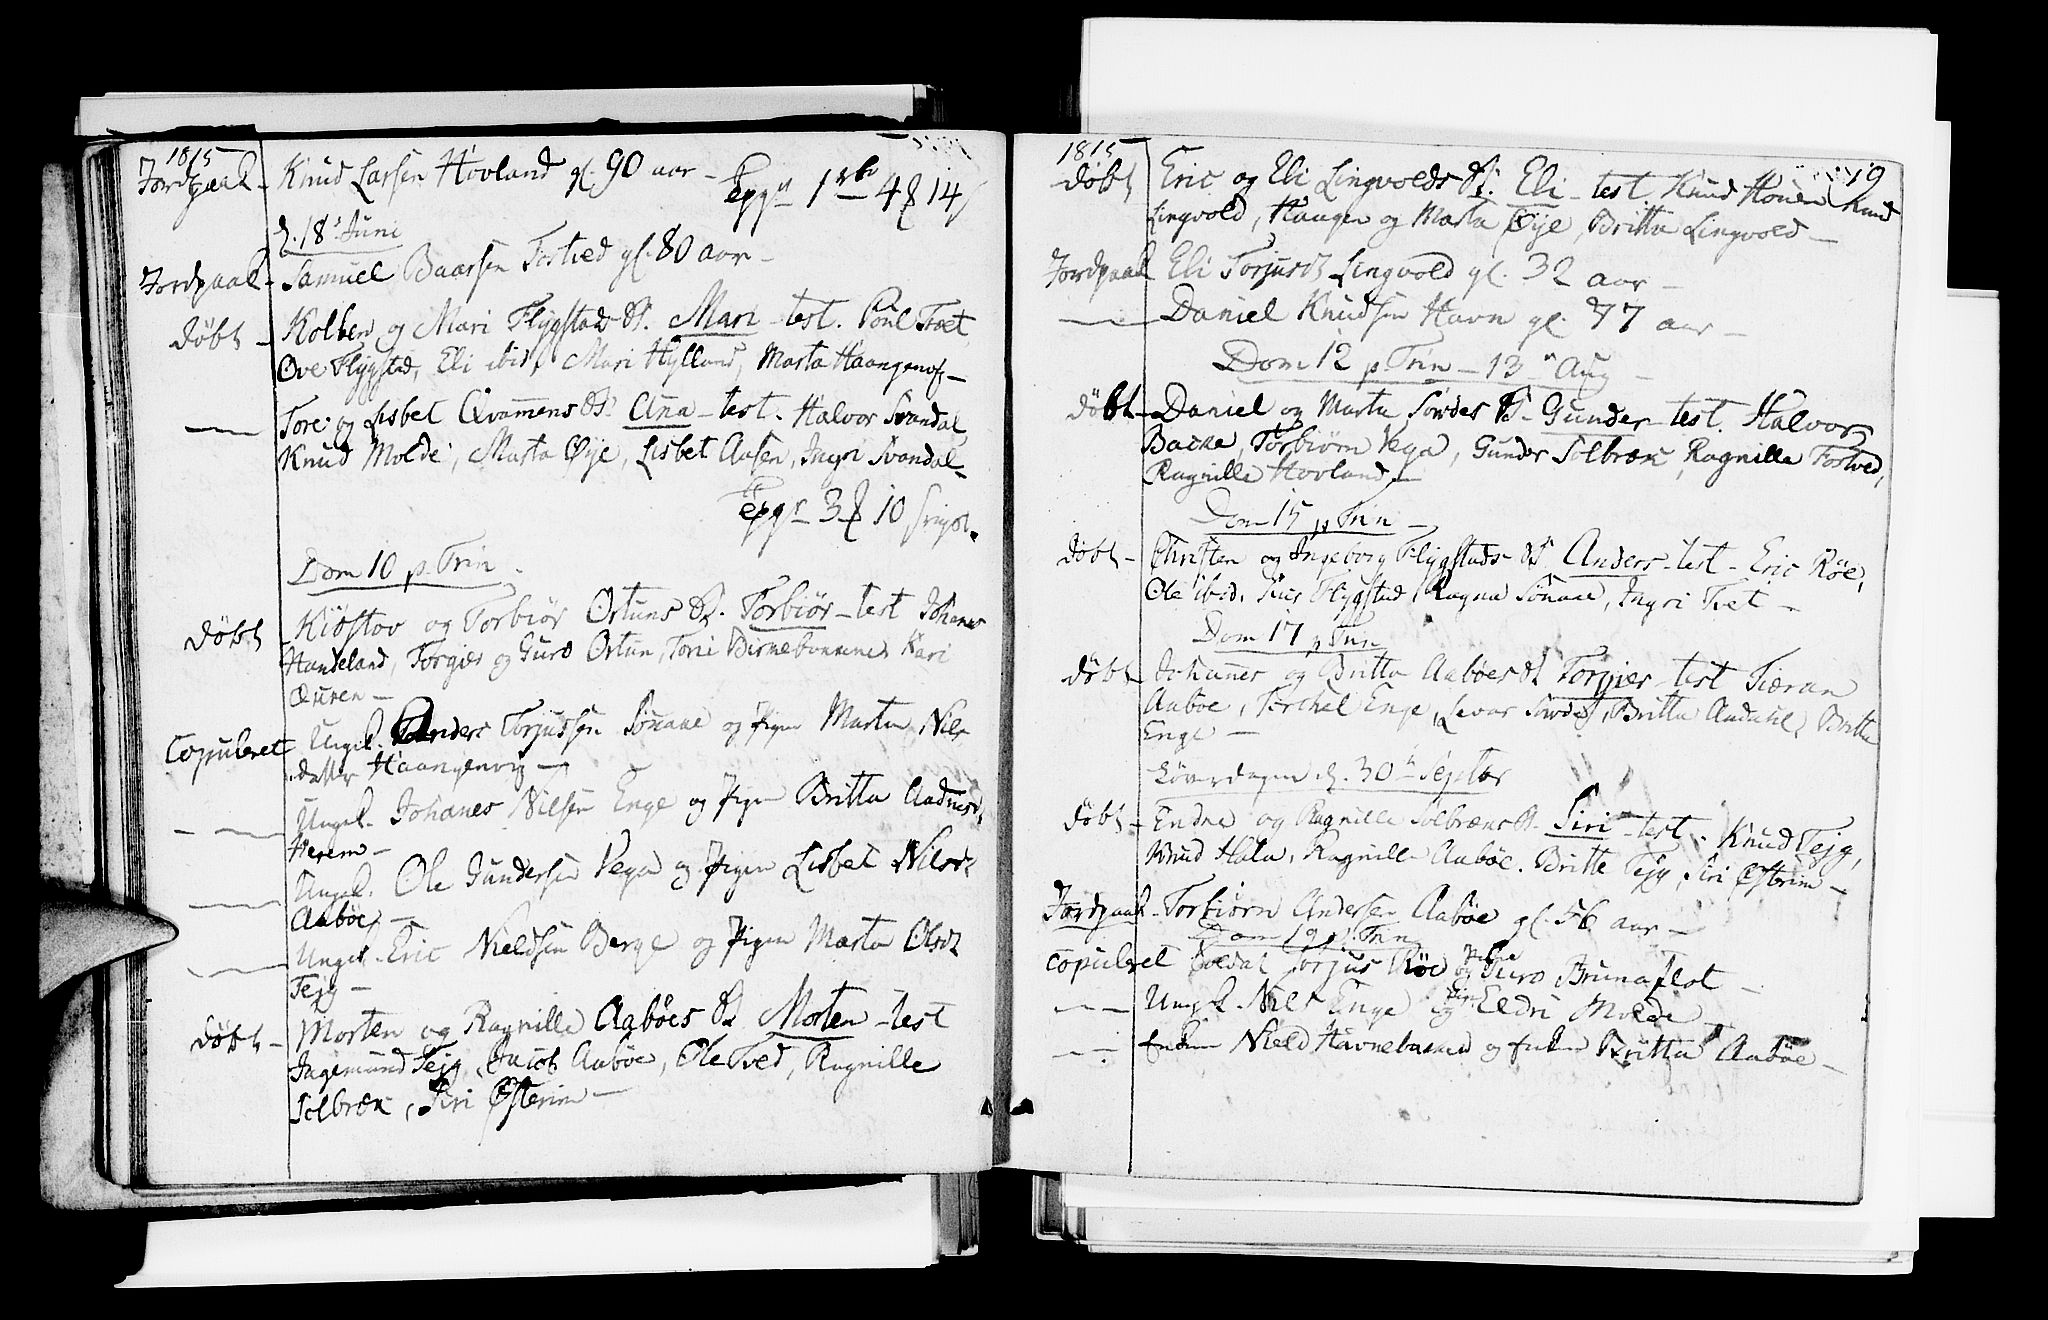 1815
Jordpaak - Knud Larsen Hovland gl. 90 aar -
1 4 14
d. 18 Juni
Jordpaak - Samuel Baarsen Tostved gl. 80 aar -
döbt - Kolben og Mari Flygstads B. Mari - test. Poul Tvet
Ove Flygstad, Eli ibid, Mari Hylland, Marta Haangenøs -
Tore og Lisbet Qvamens B. Ana - test. Halvor Svandal,
Knud Molde, Marta Øye, Lisbet Aasen, Ingri Svandal -
3 10
Dom 10 p. Trin -
döbt - Kiöstov og Torbiör Ortuns B. Torbiör - test Johannes
Handeland, Torgier og Guro Ortun, Kari
Øuren -
Copuleret Ungk. Anders Torjussen Sönaae og Pigen Marta Niels
datter Haangenvig -
Ungk. Johanes Nilsen Enge og Pigen Britta Aadnesd.
Herem -
Ungk. Ole Gundersen Vega og Pigen Lisbet Nilsd.
Aaböe -
Ungk. Eric Nieldsen Berge og Pigen Marta Olsd.
Tejg -
döbt - Morten og Ragnille Aaböes B. Morten - test
Ingemund Tejg, Jacob Aaböe, Ole Tved, Ragnille
Solbræk, Siri Østerim -
1815 19
döbt Eric og Eli Lingvolds B. Eli - test. Knud Knud
Lingvold, Haagen og Marta Øye, Britta Lingvold -
Jordpaak Eli Torjusd. Lingvold gl. 32 aar -
Daniel Knudsen Havn gl. 77 aar -
Dom 12 p. Trin - 13 Aug -
döbt - Daniel og Marta Sördes B. Gunder - test. Halvor
Backa, Torbiörn Vega, Gunder Solbræk, Ragnille Tostved,
Ragnille Hovland -
Dom 15 p Trin -
döbt - Christen og Ingeborg Flygstads B. Anders - test - Eric Röe,
Ole ibid, Flygstad, Ragna Sönaae, Ingri Tvet -
Dom 17 p Trin
döbt - Johannes og Britta Aaböes B. Torgier - test Tieran
Aaböe, Torchel Enge, Levor Sörde, Britta Aadahl, Britta
Enge -
Löverdagen d. 30 Septbr
döbt - Endre og Ragnille Solbræks B. Siri - test. Knud Tejg,
Knud Hala, Ragnille Aaböe, Britte Tejg, Siri Østerim -
Jordpaak - Torbiörn Andersen Aaböe gl. 56 aar -
Dom 19 p. Trin
Copuleret Soldat Torjus Röe og Guro Brunaflot -
Ungk. Nils Enge og Eldri Molde
Nield Havnebakka og Britta Aaböe -